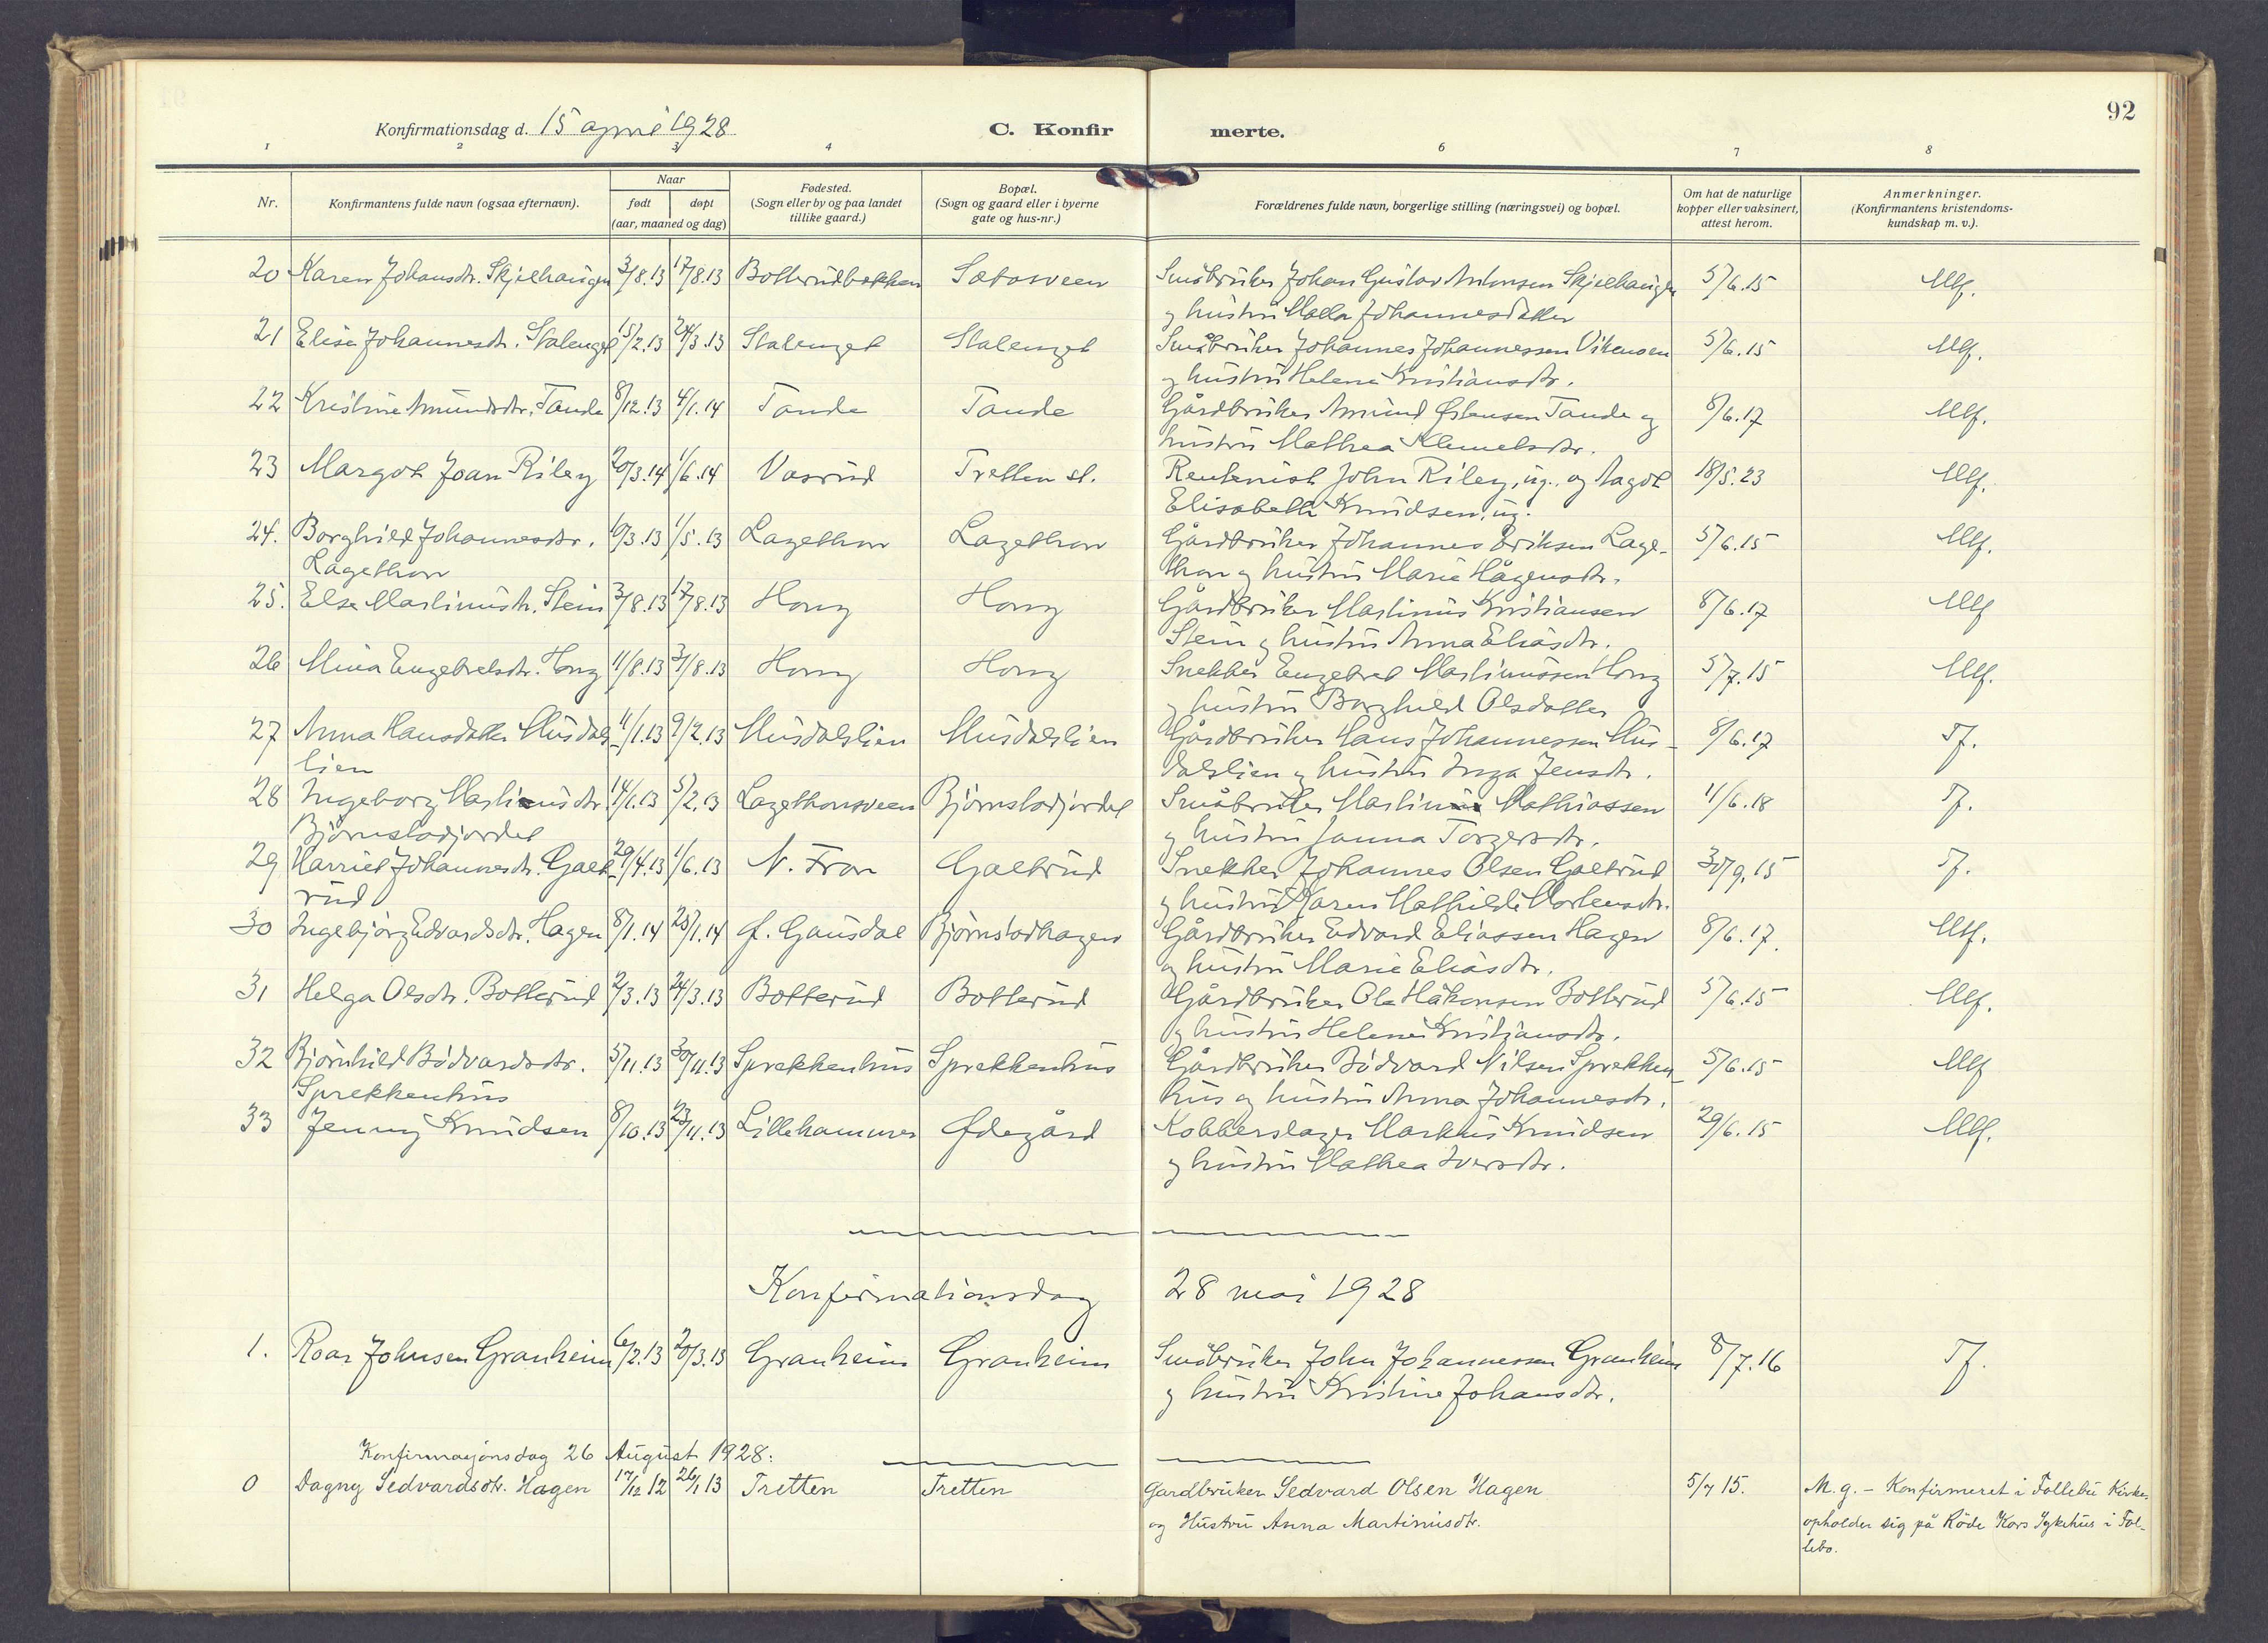 92
Konfirmationsdag d. 15 april 1928
C. Konfirmerte.
1 2 3 4 6 7 8
Nr. Konfirmantens fulde navn (ogsaa efternavn). Naar født døpt (aar, maaned og dag) Fødested. (Sogn eller by og paa landet tillike gaard.) Bopæl. (Sogn og gaard eller i byerne gate og hus-nr.) Forældrenes fulde navn, borgerlige stilling (næringsvei) og bopæl. Om hat de naturlige kopper eller vaksinert, attest herom. Anmerkninger. (Konfirmantens kristendoms-kundskap m. v.).
20 Karen Johansdr. Skjelhaugen 3/8.13 17/8.13 Botterudbakken Småbruker Johan Gustav Antonsen Skjelhaugen 5/6.15 Mf.
og hustru Johannesdatter
21 Elise Johannesdr. Stalenget 15/2.13 24/3.13 Stalenget Stalenget Småbruker Johannes Johannessen 5/6.15 Mf.
og hustru Helene Kristiansdr.
22 Kristine Amundsdr. Tande 8/12.13 4/1.14 Tande Tande Gårdbruker Amund Østensen Tande og 8/6.17 Mf.
hustru Mathea Klemetsdr.
23 Margot Joan Riley 20/3.14 1/6.14 Vasrud Tretten st. Rentenist John Riley, ug. og Aagot 18/5.23 Mf.
Elisabeth Knudsen, ug.
24. Borghild Johannesdr. 10/3.13 1/5.13 Lagethon Lagethon Gårdbruker Johannes Eriksen Lage- 5/6.15 Mf.
Lagethon thon og hustru Marie Hågensdr.
25. Else Martinusdr. Stein 3/8.13 17/8.13 Hong Hong Gårdbruker Martinus Kristiansen 8/6.17 Mf
Stein og hustru Anna Eliasdr.
26 Mina Engebretsdr. Hong 11/8.13 31/8.13 Hong Hong Snekker Engebret Martinussen Hong 5/7.15 Mf.
og hustru Borghild Olsdatter
27 Anna Hansdatter Musdals- 11/1.13 9/2.13 Musdalslien Musdalslien Gårdbruker Hans Johannessen Mus- 8/6.17 Tf.
lien dalslien og hustru Inga Jensdr.
28 Ingeborg Martinusdr. 14/1.13 5/2.13 Lagethonsveen Bjørnstadjordet Småbruker Martinus Mathiassen 11/6.18 Tf.
Bjørnstadjordet og hustru Janna Torgersdr.
29 Harriet Johannesdr. Galt- 29/4.13 1/6.13 N. Fron Galtrud Snekker Johannes Olsen Galtrud 30/9.15 Tf.
rud og hustru Karen Mathilde Mortensdr.
30 Ingebjørg Edvardsdr. Hagen 8/1.14 25/1.14 Ø. Gausdal Bjørnstadhagen Gårdbruker Edvard Eliassen Hagen 8/6.17. Mtf.
og hustru Marie Eliasdr.
31 Helga Olsdr. Botterud 2/3.13 24/3.13 Botterud Botterud Gårdbruker Ole Håkensen Botterud 5/6.15 Mf.
og hustru Helene Kristiansdr.
32 Bjørnhild Bödvardsdr. 5/11.13 30/11.13 Sprekkenhus Sprekkenhus Gårdbruker Bödvard Nilsen Sprekken- 5/6.15 Mf
Sprekkenhus hus og hustru Anna Johannesdr.
33 Jenny Knudsen 8/10.13 23/11.13 Lillehammer Ødegård Kobberslager Markus Knudsen 29/6.15 Mf.
og hustru Mathea Iversdr.
Konfirmationsdag 28 mai 1928
1. Roar Johnsen Granheim 6/2.13 20/3.13 Granheim Granheim Småbruker John Johannessen Granheim 8/7.16 Tf.
og hustru Kristine Johansdr.
Konfirmasjonsdag 26 August 1928:
0 Dagny Sedvardsdr. Hagen 17/12 12 26/1 13 Tretten Tretten Gardbruker Sedvard Olsen Hagen 5/7 15. M. g. – Konfirmeret i Follebu Kirke,
og Hustru Anna Martinusdr. opholder sig på Röde Kors Sykehus i Fol-
lebo.